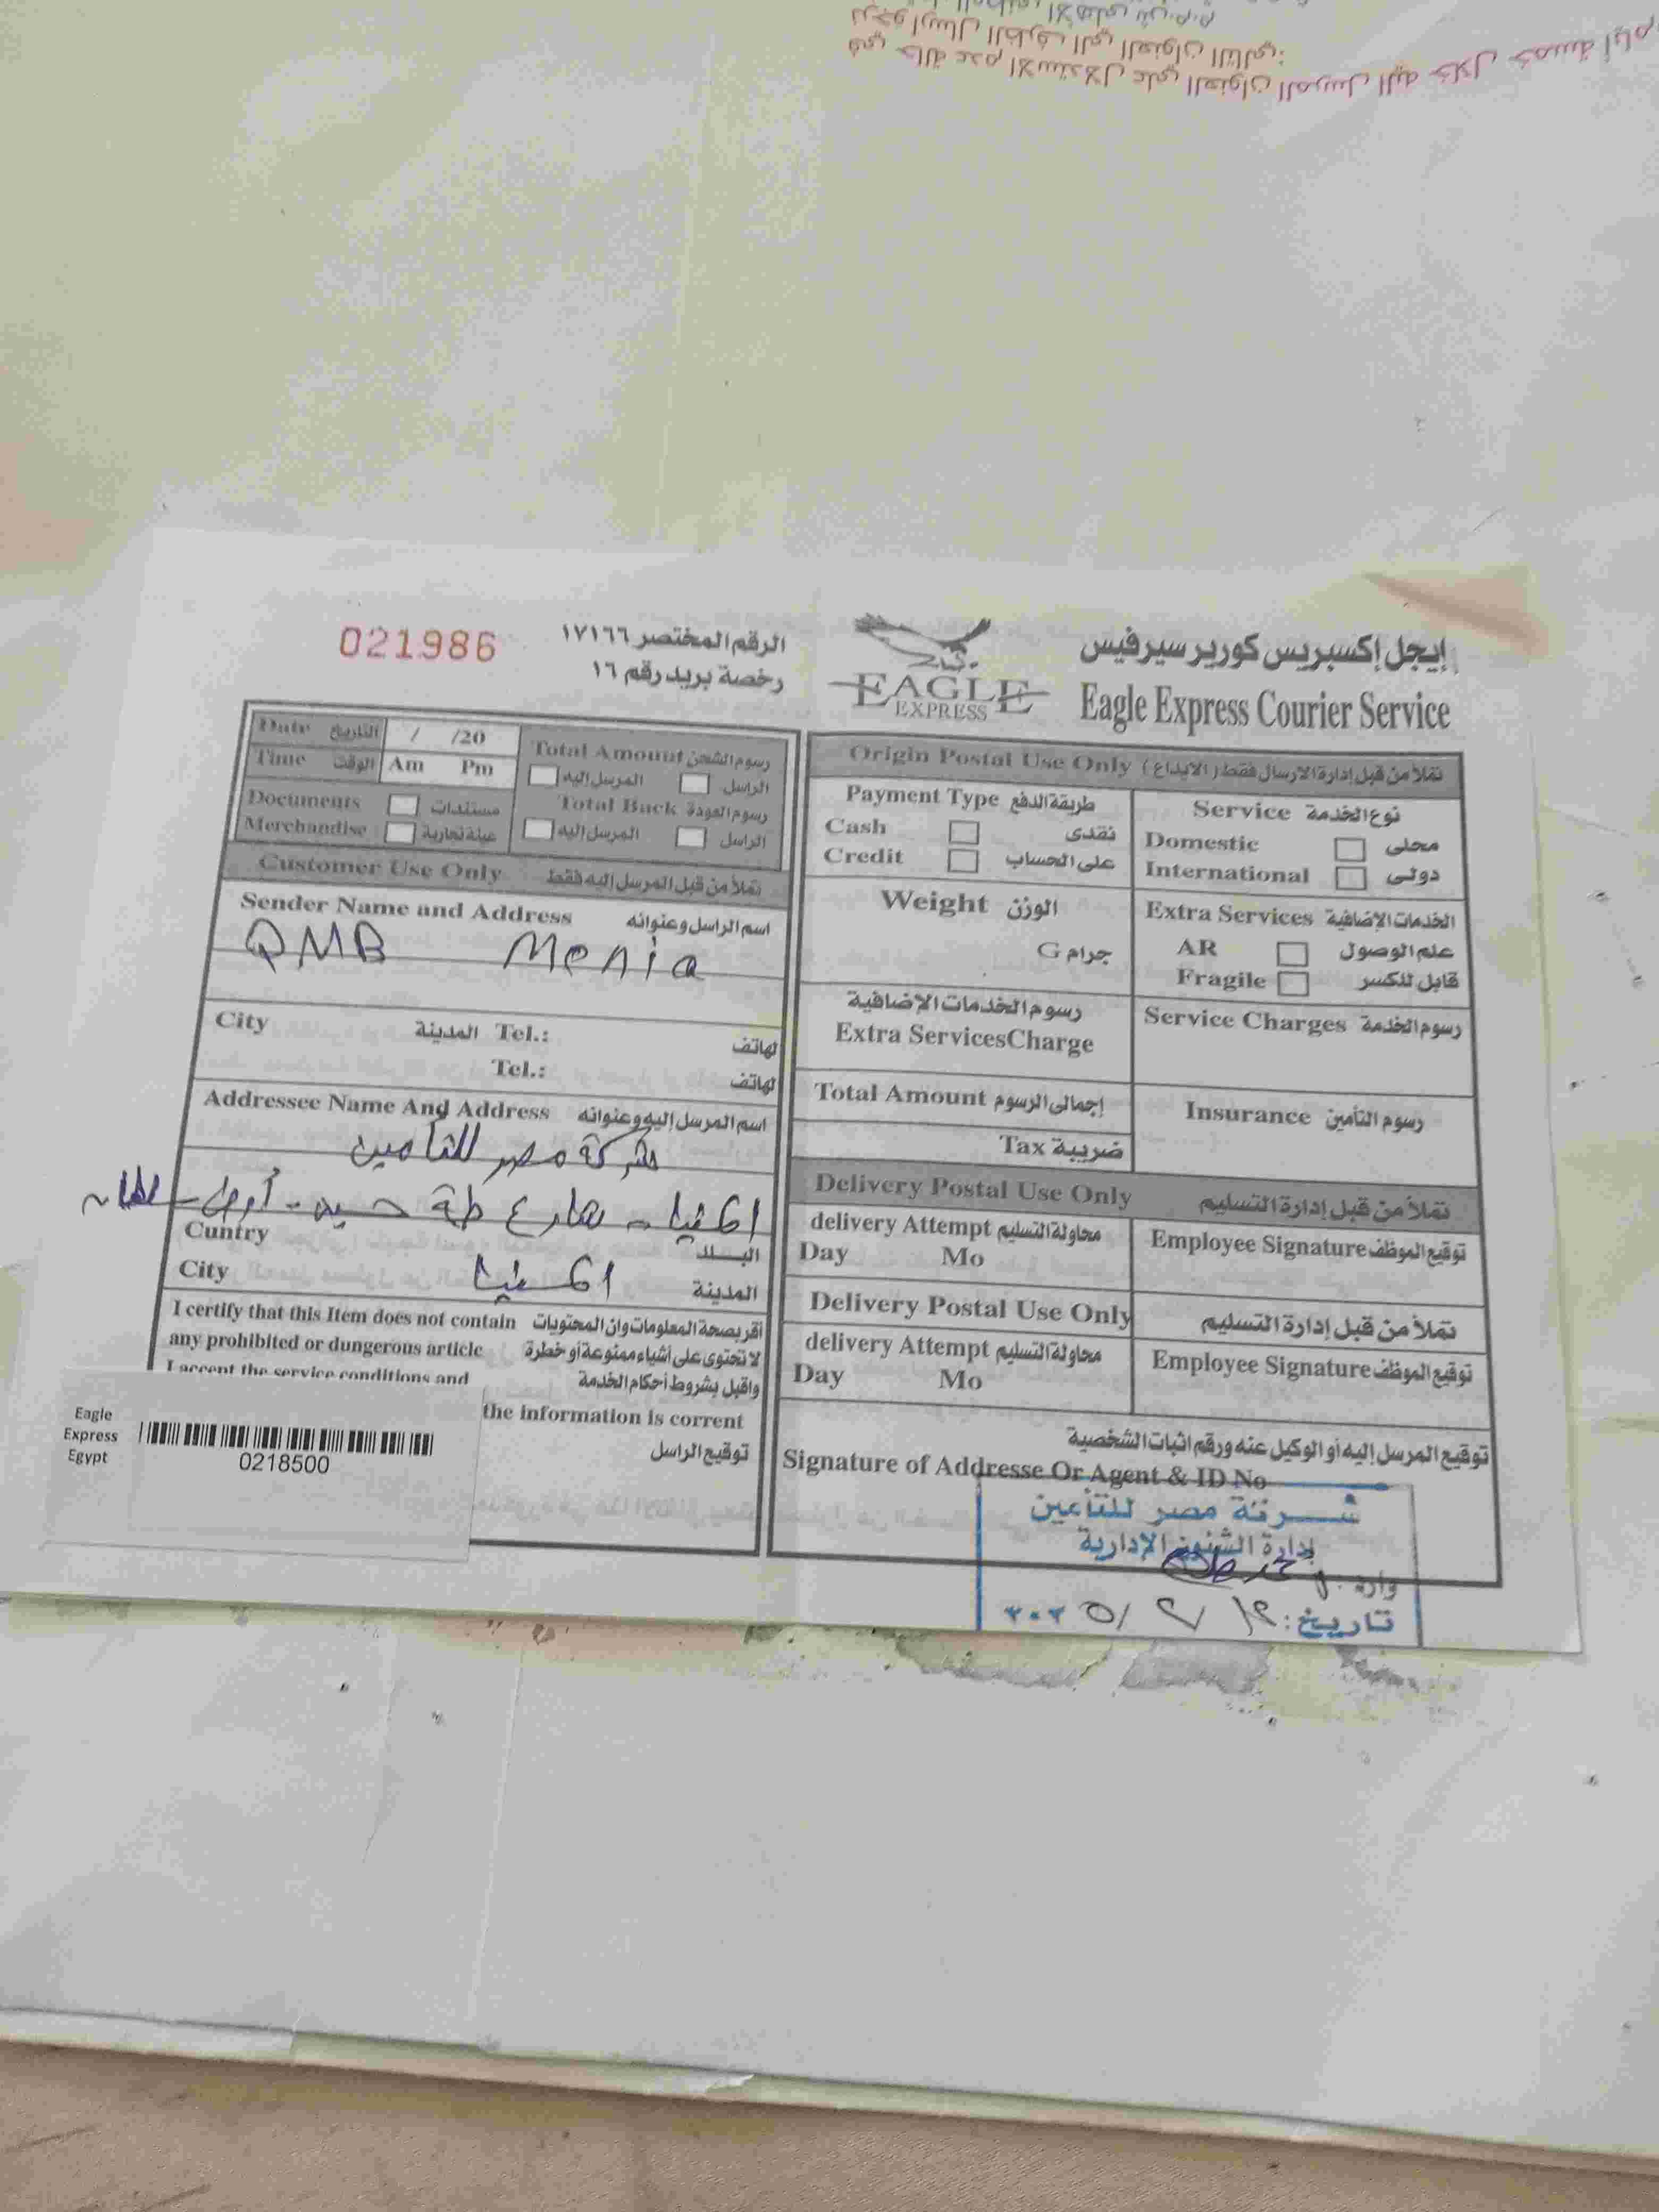 في حالة عدم الاستدلال علي العنوان المرسل اليه خلال خمسة أيام
برجاء ارسال الظرف الي العنوان التالي:
021986
الرقم المختصر ١٧١٦٦
رخصة بريد رقم ١٦
EAGLE
EXPRESS
إيجل إكسبريس كورير سيرفيس
Eagle Express Courier Service
Date التاريخ / /20
Time الوقت Am Pm
Total Amount رسوم الشحن
الراسل المرسل إليه
Documents مستندات
Merchandise عينة تجارية
Total Back رسوم العودة
الراسل المرسل إليه
Customer Use Only تملأ من قبل المرسل إليه فقط
Sender Name and Address اسم الراسل وعنوانه
QMB Menia
City المدينة Tel.: لهاتف
Tel.: لهاتف
Addressee Name And Address اسم المرسل إليه وعنوانه
شركة مصر للتأمين
المنيا - شارع طه حسين - أرض سلطان
Cuntry البلد
City المدينة المنيا
I certify that this Item does not contain أقر بصحة المعلومات وان المحتويات
any prohibited or dungerous article لا تحتوى على أشياء ممنوعة أو خطرة
I accept the service conditions and واقبل بشروط أحكام الخدمة
the information is corrent
توقيع الراسل
Eagle
Express
Egypt
0218500
Origin Postal Use Only تملأ من قبل إدارة الارسال فقط (الايداع)
Payment Type طريقة الدفع
Cash نقدى
Credit على الحساب
Service نوع الخدمة
Domestic محلى
International دولى
Weight الوزن
G جرام
Extra Services الخدمات الإضافية
AR علم الوصول
Fragile قابل للكسر
رسوم الخدمات الإضافية
Extra ServicesCharge
Service Charges رسوم الخدمة
Total Amount إجمالى الرسوم
Tax ضريبة
Insurance رسوم التأمين
Delivery Postal Use Only تملأ من قبل إدارة التسليم
delivery Attempt محاولة التسليم
Day Mo
Employee Signature توقيع الموظف
Delivery Postal Use Only تملأ من قبل إدارة التسليم
delivery Attempt محاولة التسليم
Day Mo
Employee Signature توقيع الموظف
توقيع المرسل إليه أو الوكيل عنه ورقم اثبات الشخصية
Signature of Addresse Or Agent & ID No
شركة مصر للتأمين
إدارة الشئون الإدارية
وارد
تاريخ: